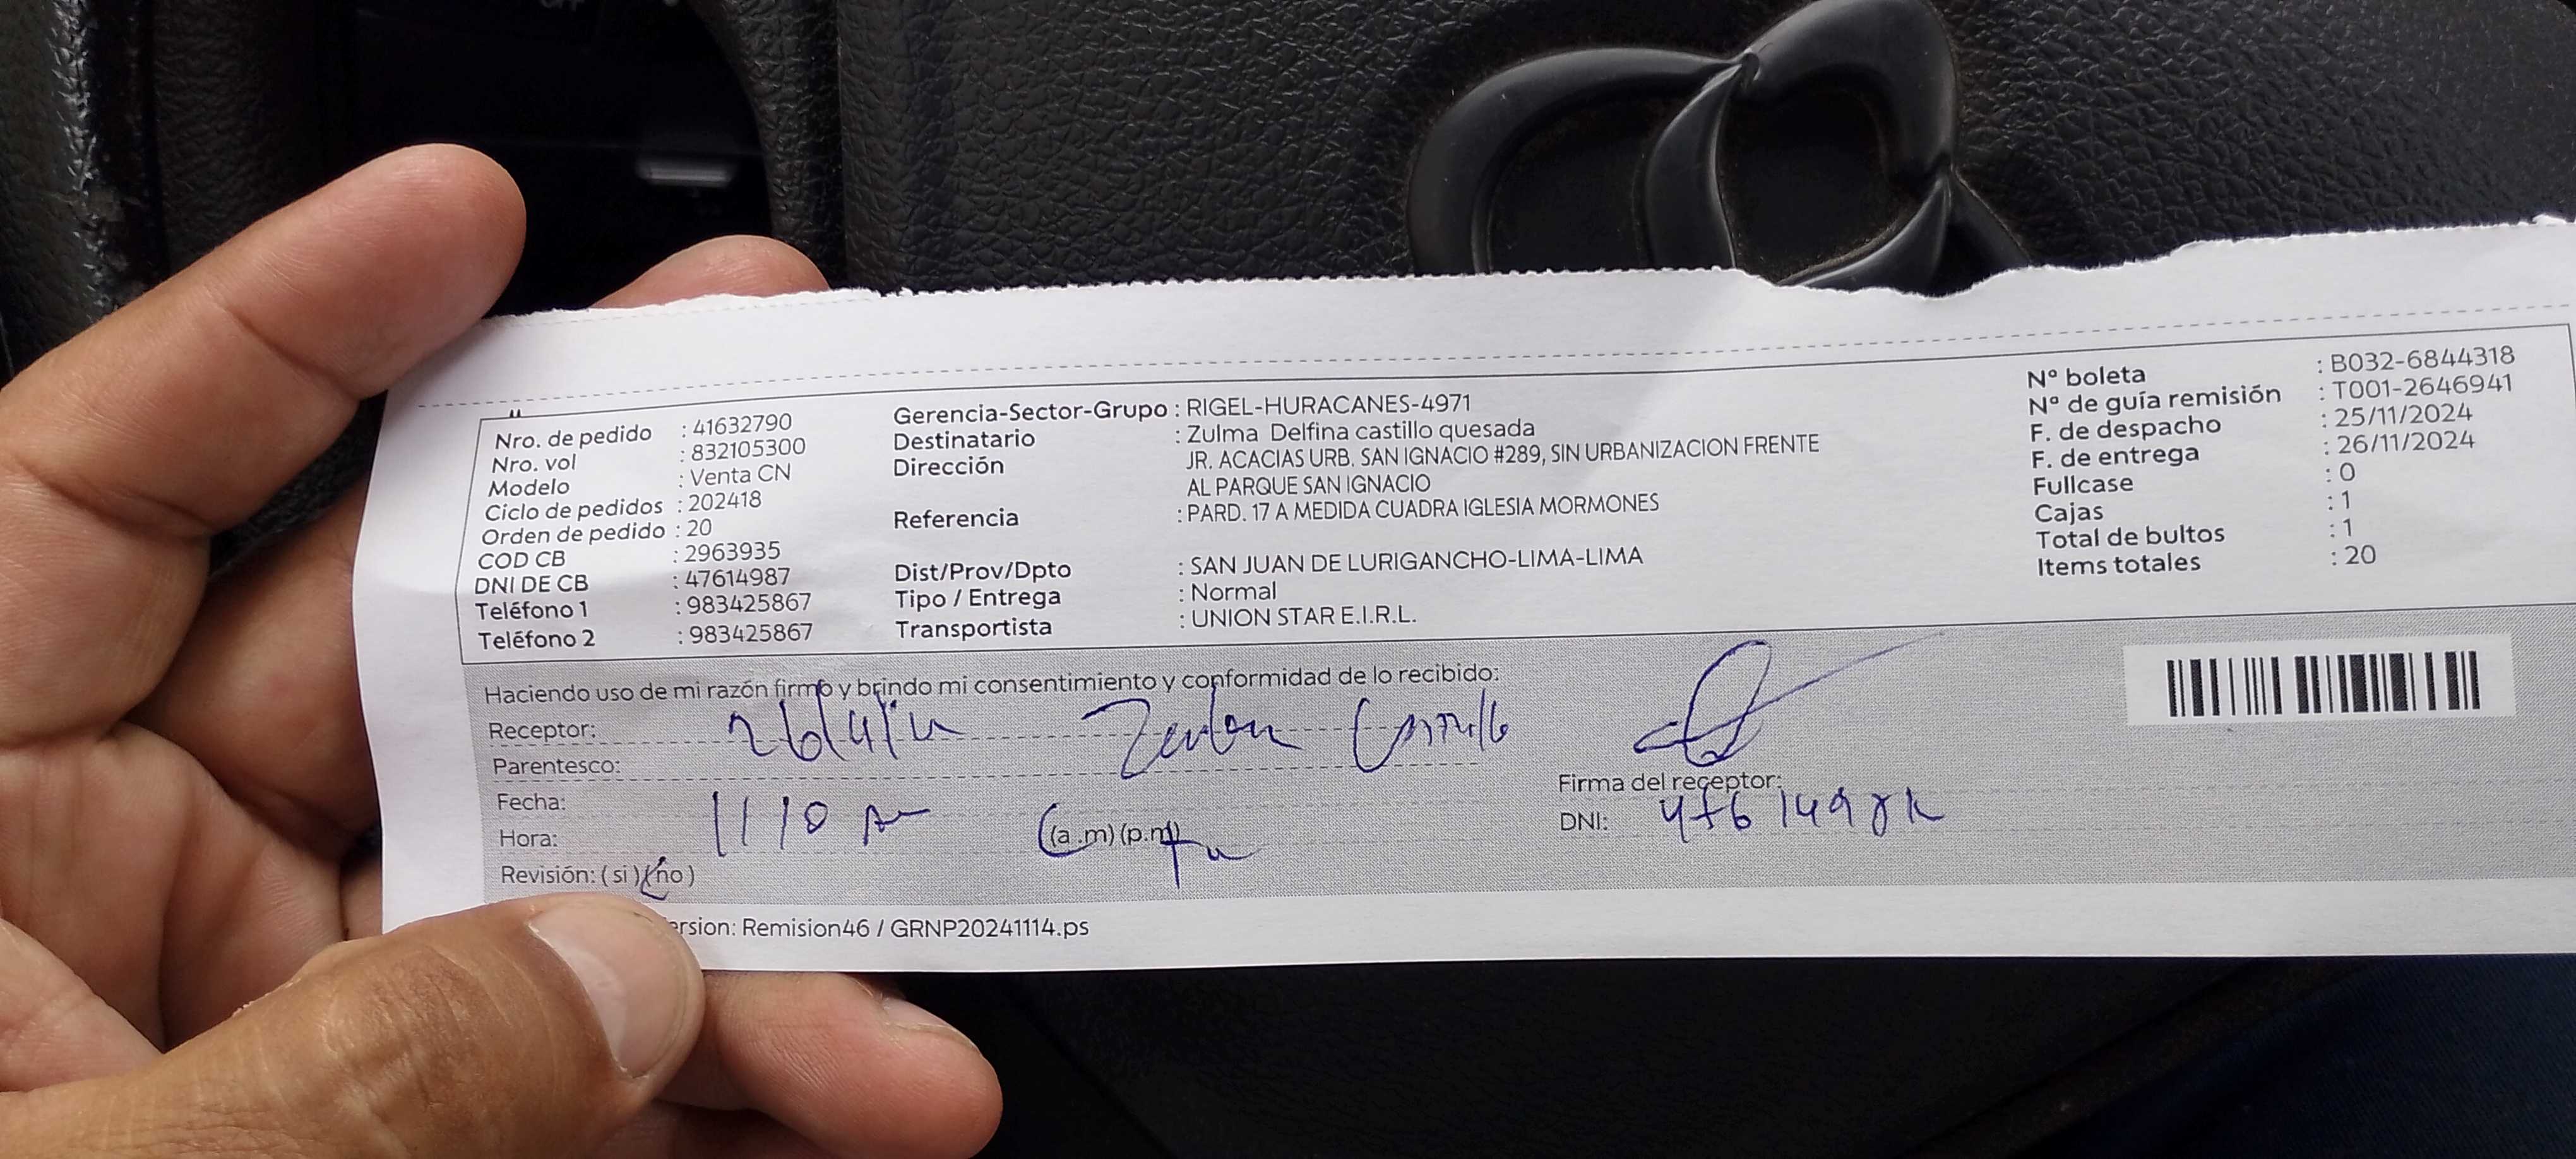 Nro. de pedido : 41632790
Nro. vol : 832105300
Modelo : Venta CN
Ciclo de pedidos : 202418
Orden de pedido : 20
COD CB : 2963935
DNI DE CB : 47614987
Teléfono 1 : 983425867
Teléfono 2 : 983425867
Gerencia-Sector-Grupo : RIGEL-HURACANES-4971
Destinatario : Zulma Delfina castillo quesada
Dirección JR. ACACIAS URB. SAN IGNACIO #289, SIN URBANIZACION FRENTE
AL PARQUE SAN IGNACIO
Referencia : PARD. 17 A MEDIDA CUADRA IGLESIA MORMONES
Dist/Prov/Dpto : SAN JUAN DE LURIGANCHO-LIMA-LIMA
Tipo / Entrega : Normal
Transportista : UNION STAR E.I.R.L.
Nº boleta : B032-6844318
Nº de guía remisión : T001-2646941
F. de despacho : 25/11/2024
F. de entrega : 26/11/2024
Fullcase : 0
Cajas : 1
Total de bultos : 1
Items totales : 20
Haciendo uso de mi razón firmo y brindo mi consentimiento y conformidad de lo recibido:
Receptor:
Parentesco:
Fecha: 1110
Hora: (a.m) (p.m)
Revisión: (si) (no)
Firma del receptor:
DNI:
ersion: Remision46 / GRNP20241114.ps